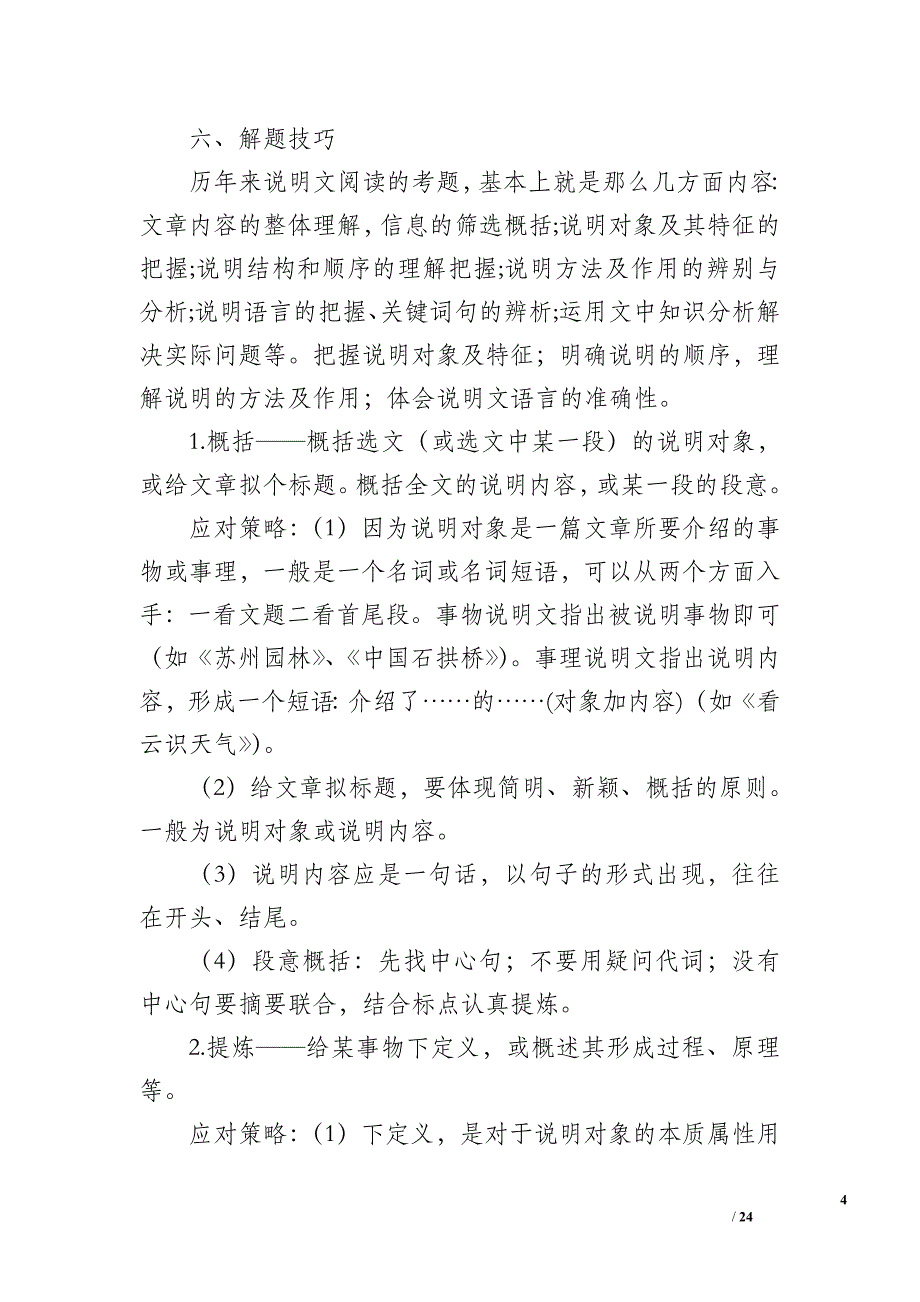 六、解题技巧
历年来说明文阅读的考题,基本上就是那么几方面内容:
文章内容的整体理解,信息的筛选概括;说明对象及其特征的
把握;说明结构和顺序的理解把握;说明方法及作用的辨别与
分析;说明语言的把握、关键词句的辨析;运用文中知识分析解
决实际问题等。把握说明对象及特征；明确说明的顺序，理
解说明的方法及作用；体会说明文语言的准确性。
1.概括——概括选文（或选文中某一段）的说明对象，
或给文章拟个标题。概括全文的说明内容，或某一段的段意。
应对策略：（1）因为说明对象是一篇文章所要介绍的事
物或事理，一般是一个名词或名词短语，可以从两个方面入
手：一看文题二看首尾段。事物说明文指出被说明事物即可
（如《苏州园林》、《中国石拱桥》）。事理说明文指出说明内
容，形成一个短语: 介绍了……的……(对象加内容)（如《看
云识天气》）。
（2）给文章拟标题，要体现简明、新颖、概括的原则。
一般为说明对象或说明内容。
（3）说明内容应是一句话，以句子的形式出现，往往
在开头、结尾。
（4）段意概括：先找中心句；不要用疑问代词；没有
中心句要摘要联合，结合标点认真提炼。
2.提炼——给某事物下定义，或概述其形成过程、原理
等。
应对策略：（1）下定义，是对于说明对象的本质属性用
4
/ 24